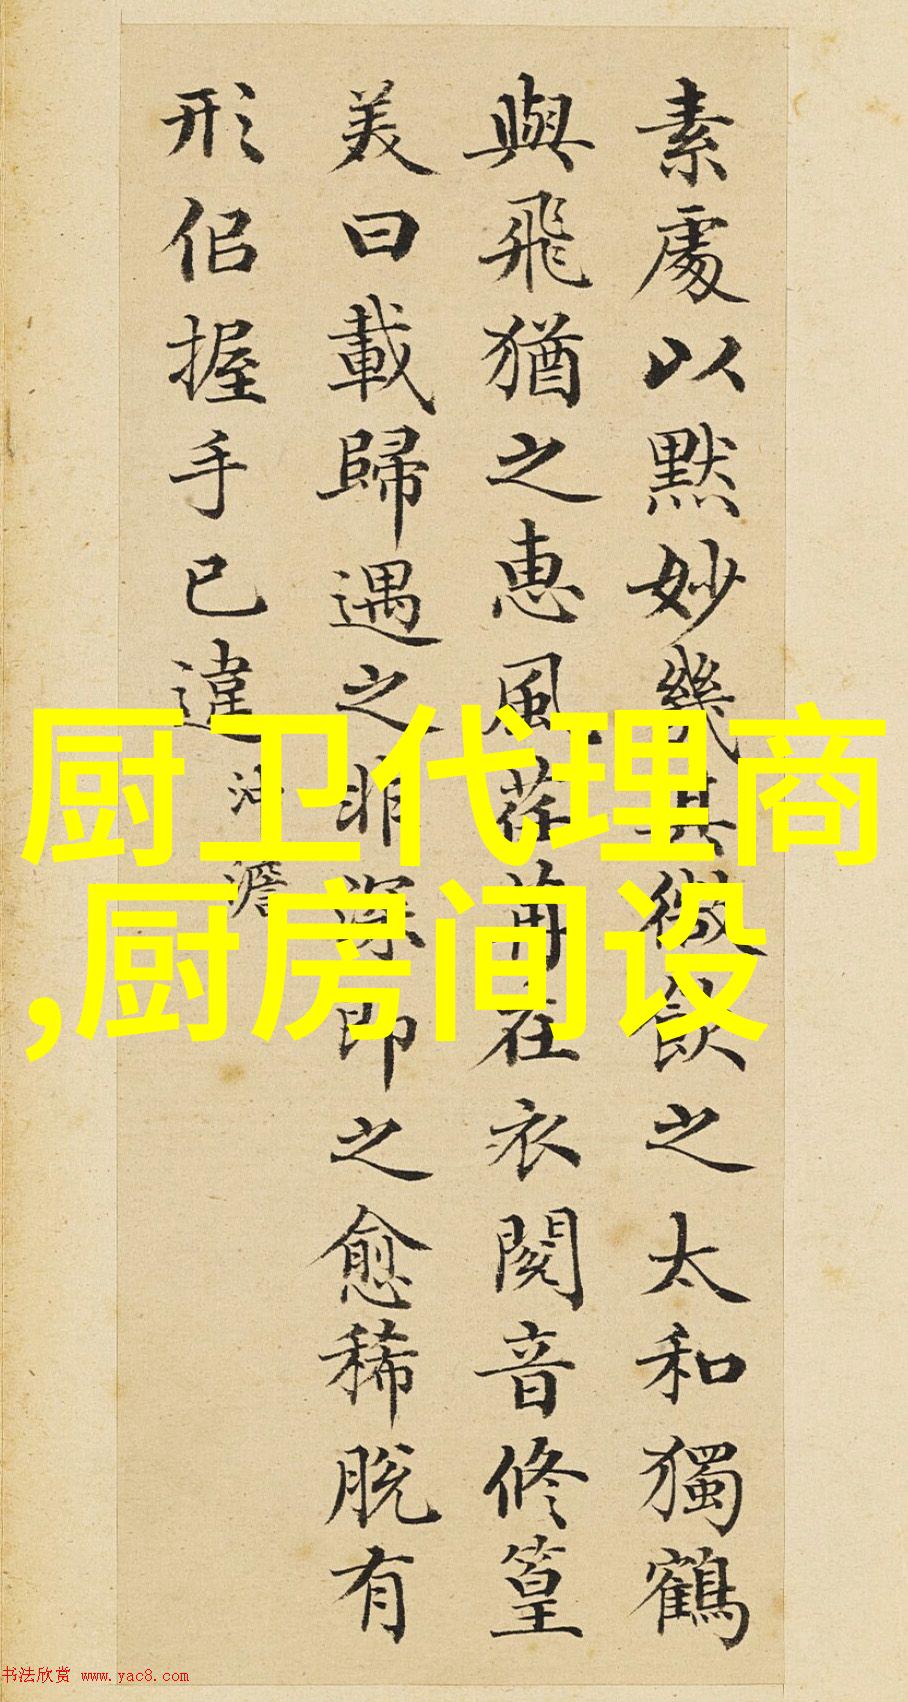 素處以默妙機其微飲之太和獨鶴
與飛猶之惠風荏苒在衣閱音修篁
美曰載歸遇之非深即之愈稀脫有
形侣握手已違 沖澹
厨卫代理商
,厨房间设
书法欣赏 www.yac8.com